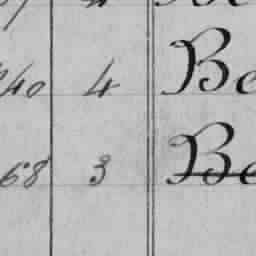 40 4 Be
68 3 Be